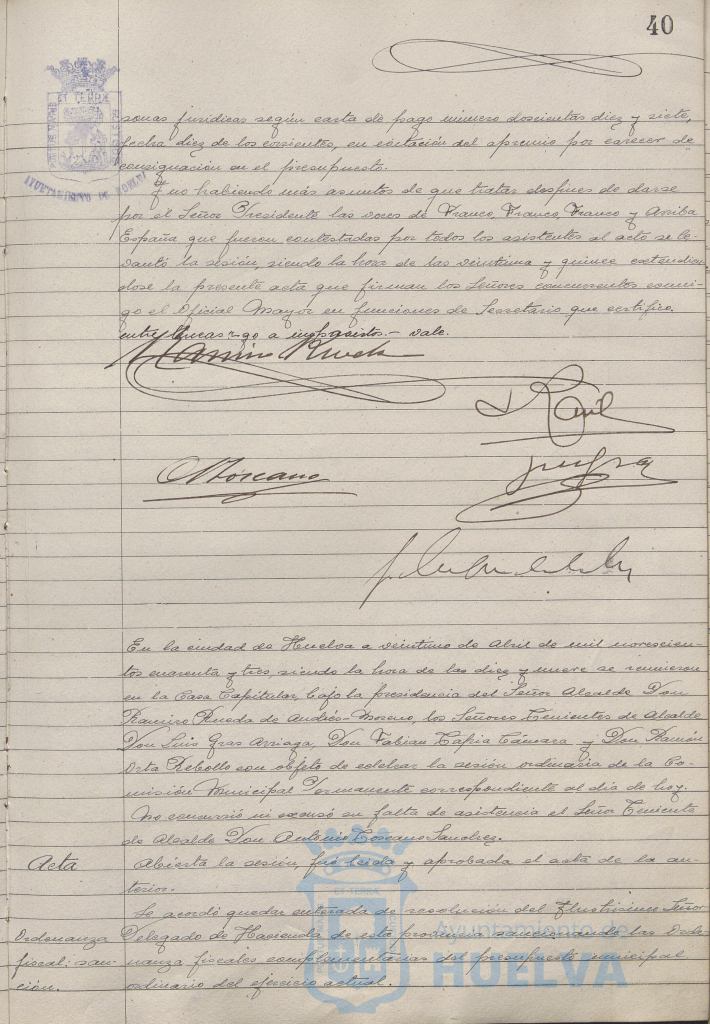 40
sonas jurídicas según carta de pago número doscientos diez y siete,
fecha diez de los corrientes, en evitación del apremio por carecer de
consignación en el presupuesto.
Y no habiendo más asuntos de que tratar despues de darse
por el Señor Presidente las voces de Franco, Franco, Franco y Arriba
España que fueron contestadas por todos los asistentes al acto se le-
vantó la sesión, siendo la hora de las veintiuna y quince extendien-
dose la presente acta que firman los Señores concurrentes conmi-
go el Oficial Mayor en funciones de Secretario que certifico.
entre lineas - vale.
Ramiro Rueda
Toscano
En la ciudad de Huelva a veintiuno de Abril de mil novescien-
tos cuarenta y tres, siendo la hora de las diez y nueve se reunieron
en la Casa Capitular, bajo la presidencia del Señor Alcalde Don
Ramiro Rueda de Andrés-Moreno, los Señores Tenientes de Alcalde
Don Luis Gras Arriaga, Don Fabian Tapia Cámara y Don Ramón
Orta Rebollo con objeto de celebrar la sesión ordinaria de la Co-
misión Municipal Permanente correspondiente al día de hoy.
No concurrió ni excusó su falta de asistencia el Señor Teniente
de Alcalde Don Antonio Toscano Sanchez.
Acta
Abierta la sesión, fué leida y aprobada el acta de la an-
terior.
Ordenanza
fiscal: san-
ción.
Se acordó quedar enterada de resolución del Ilustrisimo Señor
Delegado de Hacienda de esta provincia sancionando las Orde-
nanza fiscales complementarias del presupuesto municipal
ordinario del ejercicio actual.
Ayuntamiento de
HUELVA